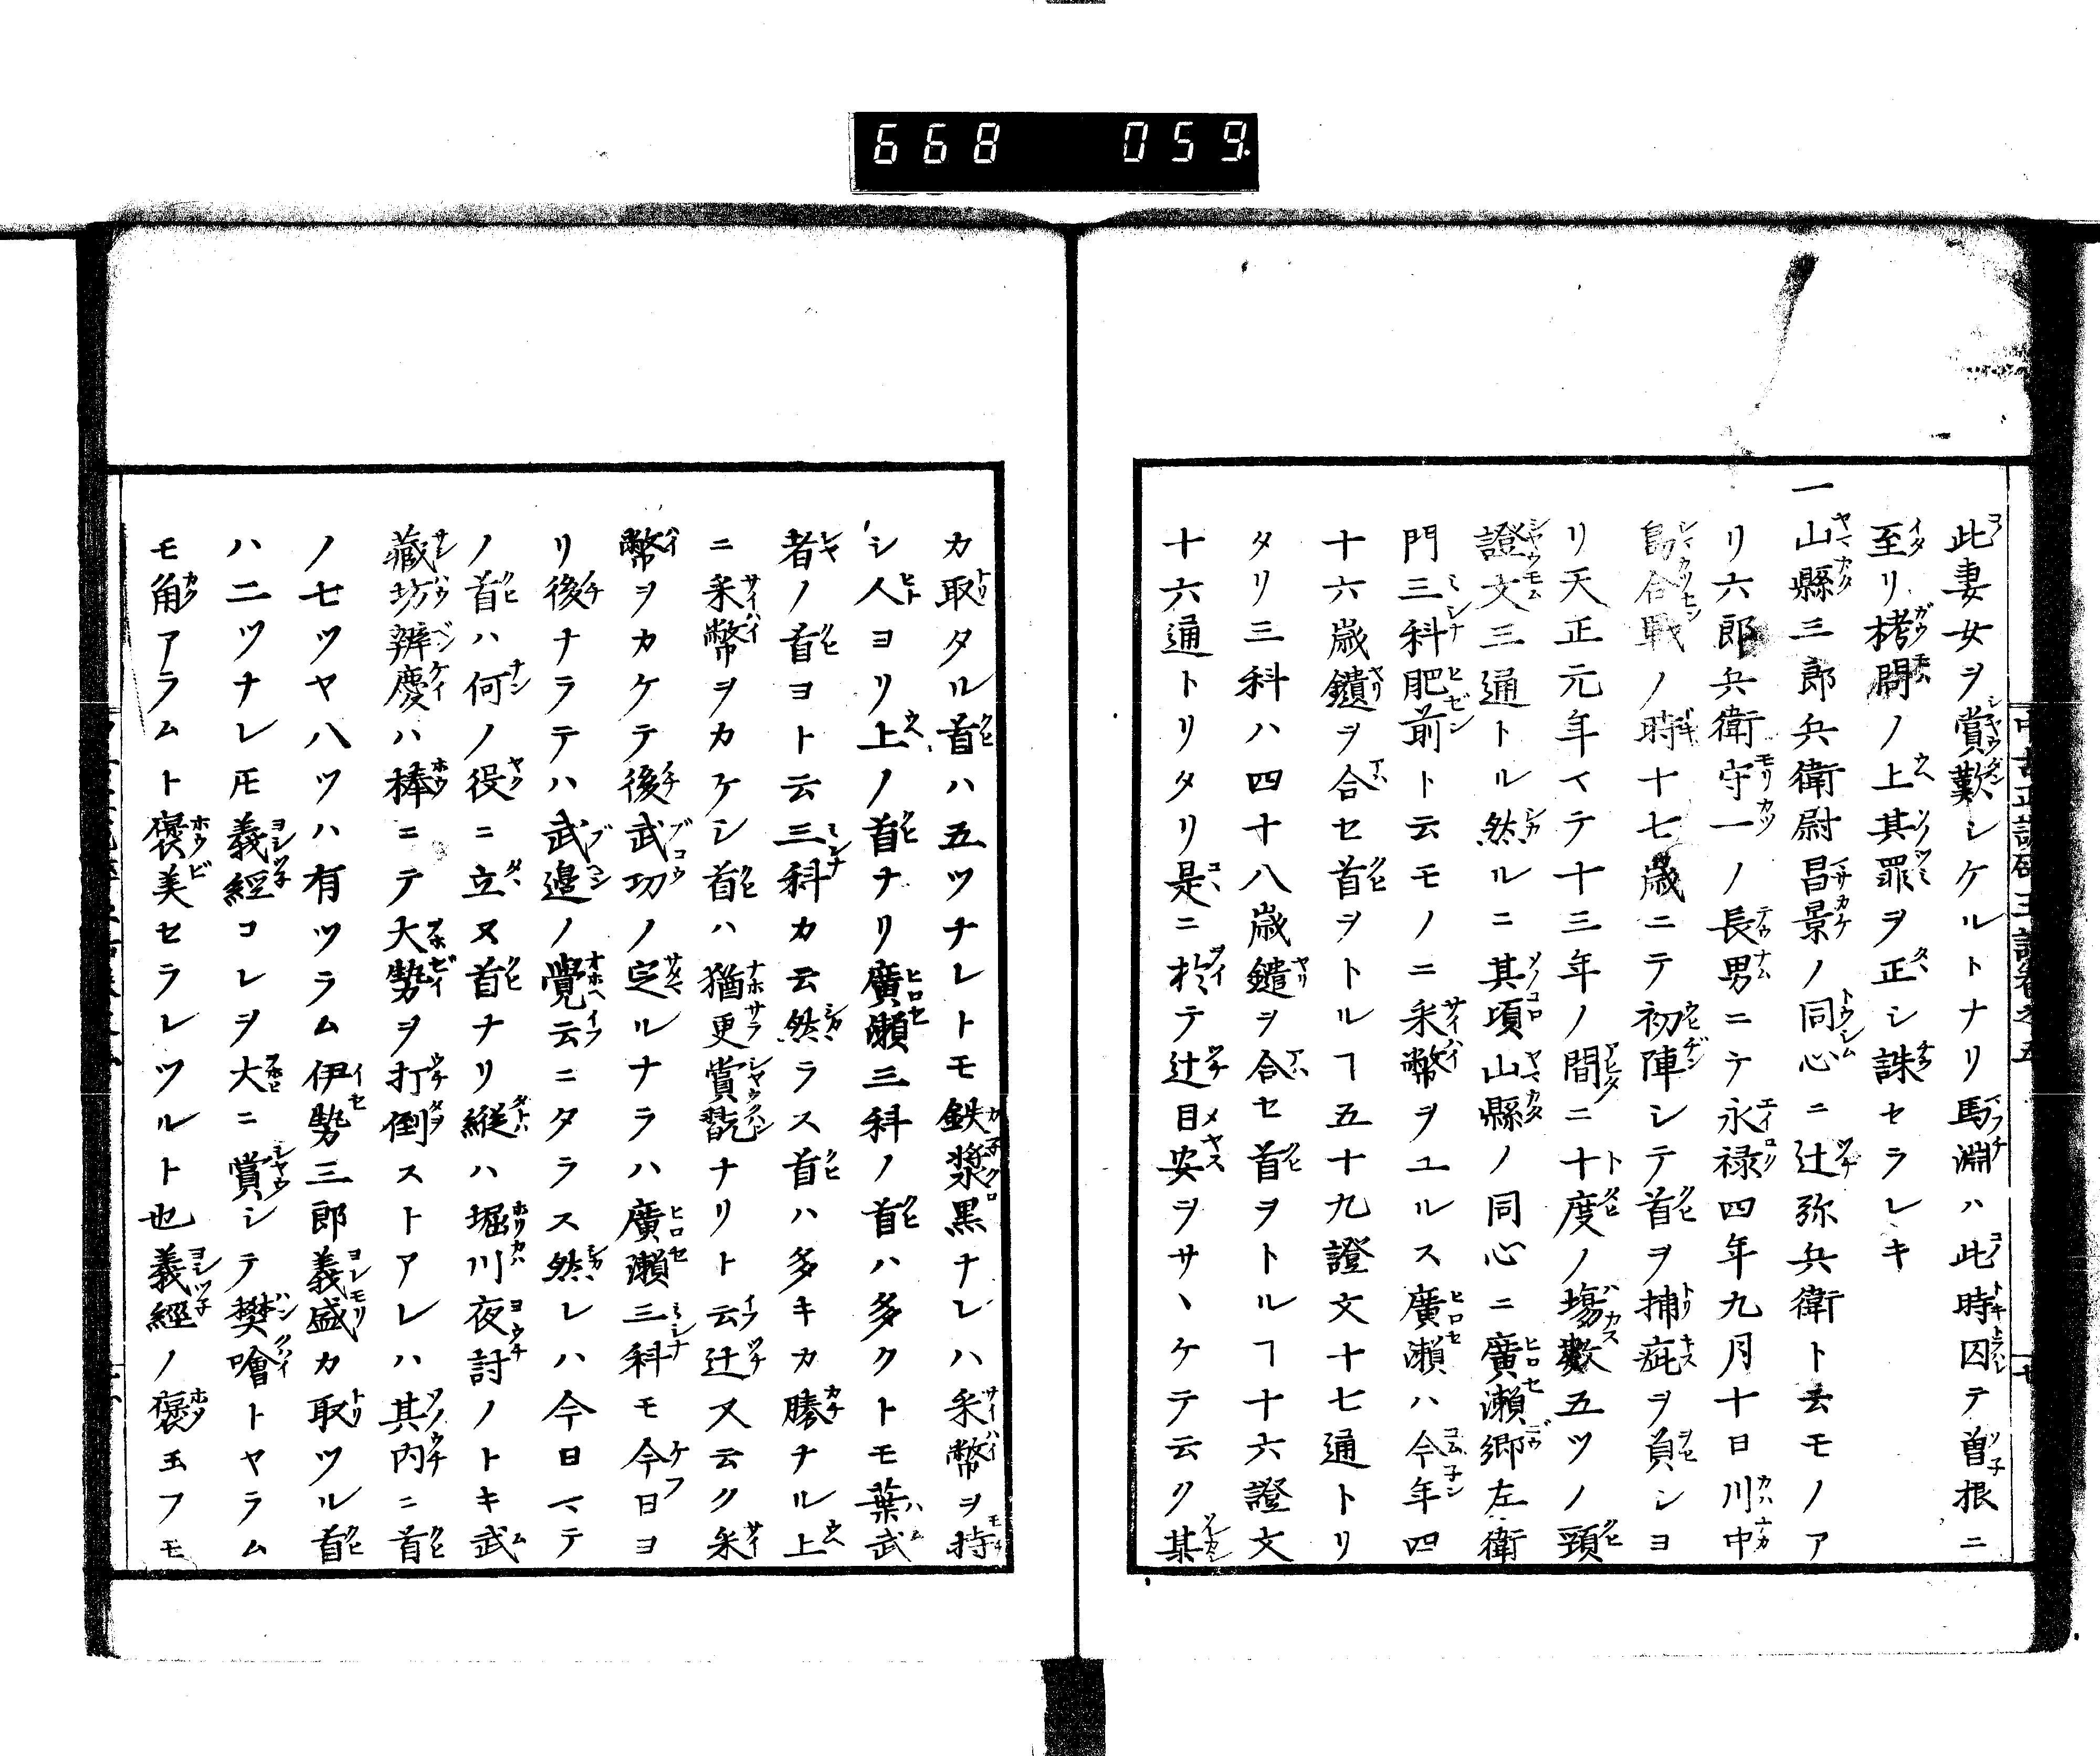 668 059
此妻女ヲ賞歎シケルトナリ馬淵ハ此時囚テ曽根ニ
至リ栲問ノ上其罪ヲ正シ誅セラレキ
一山縣三郎兵衛尉昌景ノ同心ニ辻弥兵衛ト云モノア
リ六郎兵衛守一ノ長男ニテ永禄四年九月十日川中
島合戰ノ時十七歳ニテ初陣シテ首ヲ捕疵ヲ負シヨ
リ天正元年マテ十三年ノ間ニ十度ノ塲數五ツノ頸
證文三通トル然ルニ其頃山縣ノ同心ニ廣瀬郷左衛
門三科肥前ト云モノニ采幣ヲユルス廣瀬ハ今年四
十六歳鑓ヲ合セ首ヲトルヿ五十九證文十七通トリ
タリ三科ハ四十八歳鑓ヲ合セ首ヲトルヿ十六證文
十六通トリタリ是ニ於テ辻目安ヲサヽケテ云ク某
カ取タル首ハ五ツナレトモ鉄漿黒ナレハ采幣ヲ持
シ人ヨリ上ノ首ナリ廣瀬三科ノ首ハ多クトモ葉武
者ノ首ヨト云三科カ云然ラス首ハ多キカ勝ナル上
ニ采幣ヲカケシ首ハ猶更賞翫ナリト云辻又云ク采
幣ヲカケテ後武功ノ定ルナラハ廣瀬三科モ今日ヨ
リ後ナラテハ武邉ノ覺云ニタラス然レハ今日マテ
ノ首ハ何ノ役ニ立ヌ首ナリ縦ハ堀川夜討ノトキ武
藏坊辨慶ハ棒ニテ大勢ヲ打倒ストアレハ其内ニ首
ノ七ツヤ八ツハ有ツラム伊勢三郎義盛カ取ツル首
ハ二ツナレ𪜈義經コレヲ大ニ賞シテ樊噲トヤラム
モ角アラムト褒美セラレツルト也義經ノ褒玉フモ